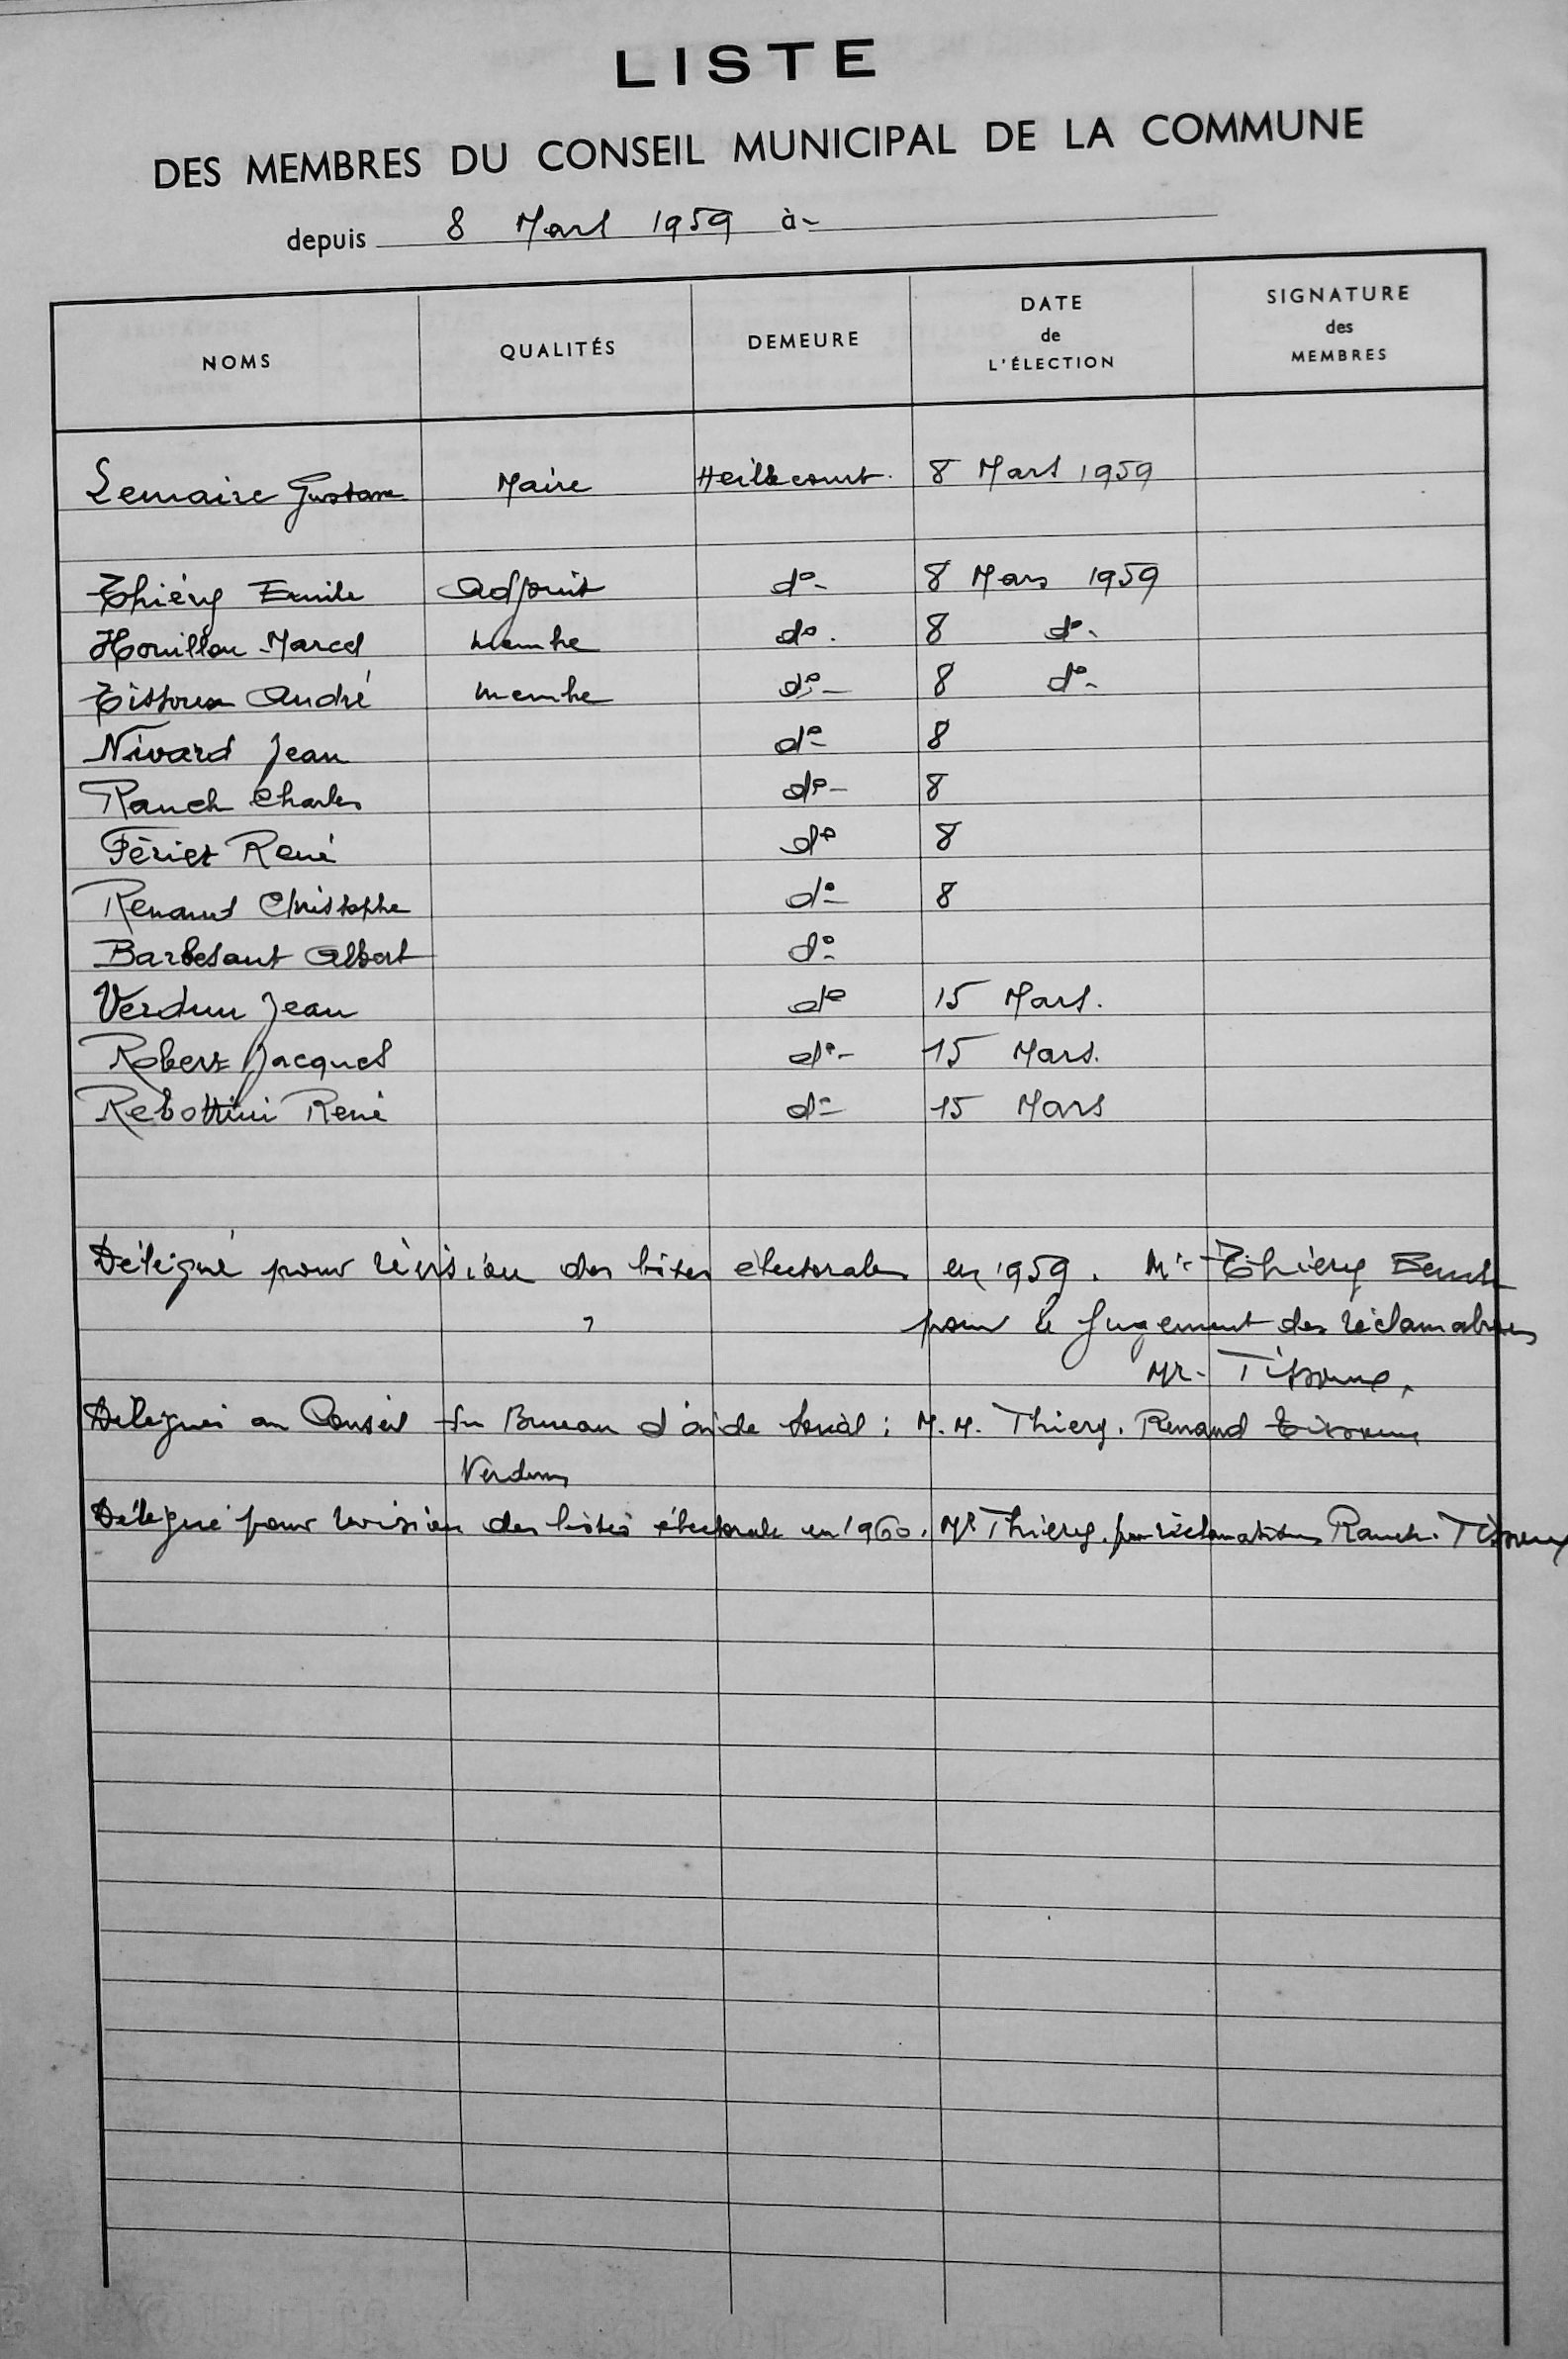 LISTE
DES MEMBRES DU CONSEIL MUNICIPAL DE LA COMMUNE
depuis 8 Mars 1959 à-
NOMS QUALITÉS DEMEURE DATE de L'ÉLECTION SIGNATURE des MEMBRES
Lemaire Gustave Maire Heillecourt. 8 Mars 1959
Thiéry Emile Adjoint do- 8 Mars 1959
Houillon Marcel membre do. 8 do-
Tissoux André membre do- 8 do-
Nivard Jean do- 8
Rauch Charles do- 8
Fériet René do 8
Renaud Christophe do- 8
Barbesant Albert do-
Verdun Jean do 15 Mars.
Robert Jacques do- 15 Mars.
Rebottini René do- 15 Mars
Délégué pour révision des listes électorales en 1959. Mr Thiéry Emile
" pour le Jugement des réclamations
Mr. Tissoux.
Délégués au Conseil du Bureau d'aide social : M.M. Thiery. Renaud Tissoux
Verdun
Délégué pour revision des listes électorale en 1960. Mr Thiery. pour réclamations Rauch. Tissoux